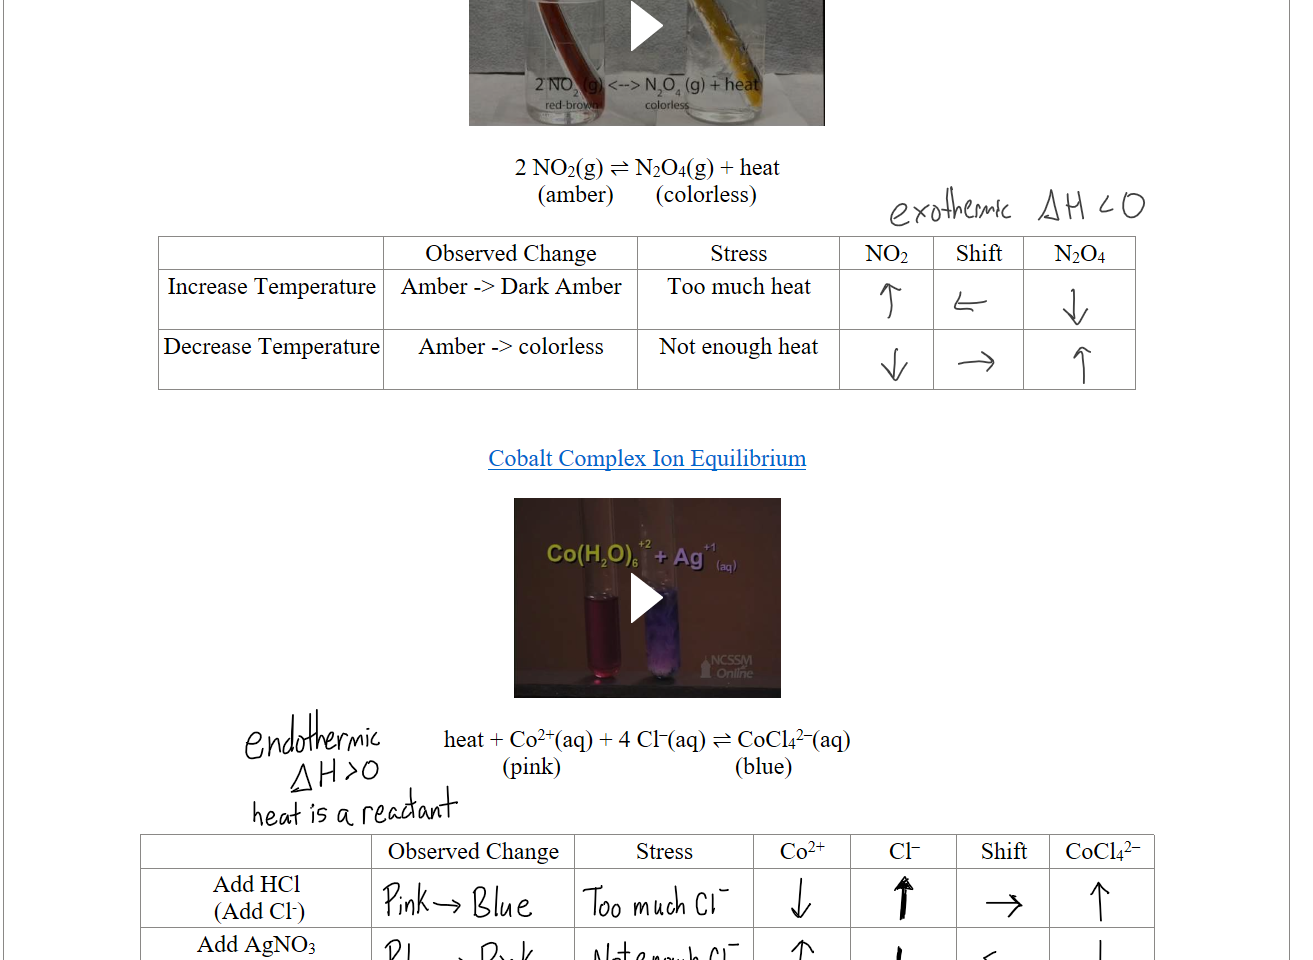 2 NO₂(g) <--> N₂O₄ (g) + heat
red-brown colorless
2 NO₂(g) ⇌ N₂O₄(g) + heat
(amber) (colorless)
exothermic ΔH < 0
Observed Change Stress NO₂ Shift N₂O₄
Increase Temperature Amber -> Dark Amber Too much heat ↑ ← ↓
Decrease Temperature Amber -> colorless Not enough heat ↓ → ↑
Cobalt Complex Ion Equilibrium
Co(H₂O)₆⁺² + Ag⁺¹(aq)
NCSSM
Online
endothermic
ΔH > 0
heat is a reactant
heat + Co²⁺(aq) + 4 Cl⁻(aq) ⇌ CoCl₄²⁻(aq)
(pink) (blue)
Observed Change Stress Co²⁺ Cl⁻ Shift CoCl₄²⁻
Add HCl
(Add Cl⁻) Pink → Blue Too much Cl⁻ ↓ ↑ → ↑
Add AgNO₃ Not enough Cl⁻